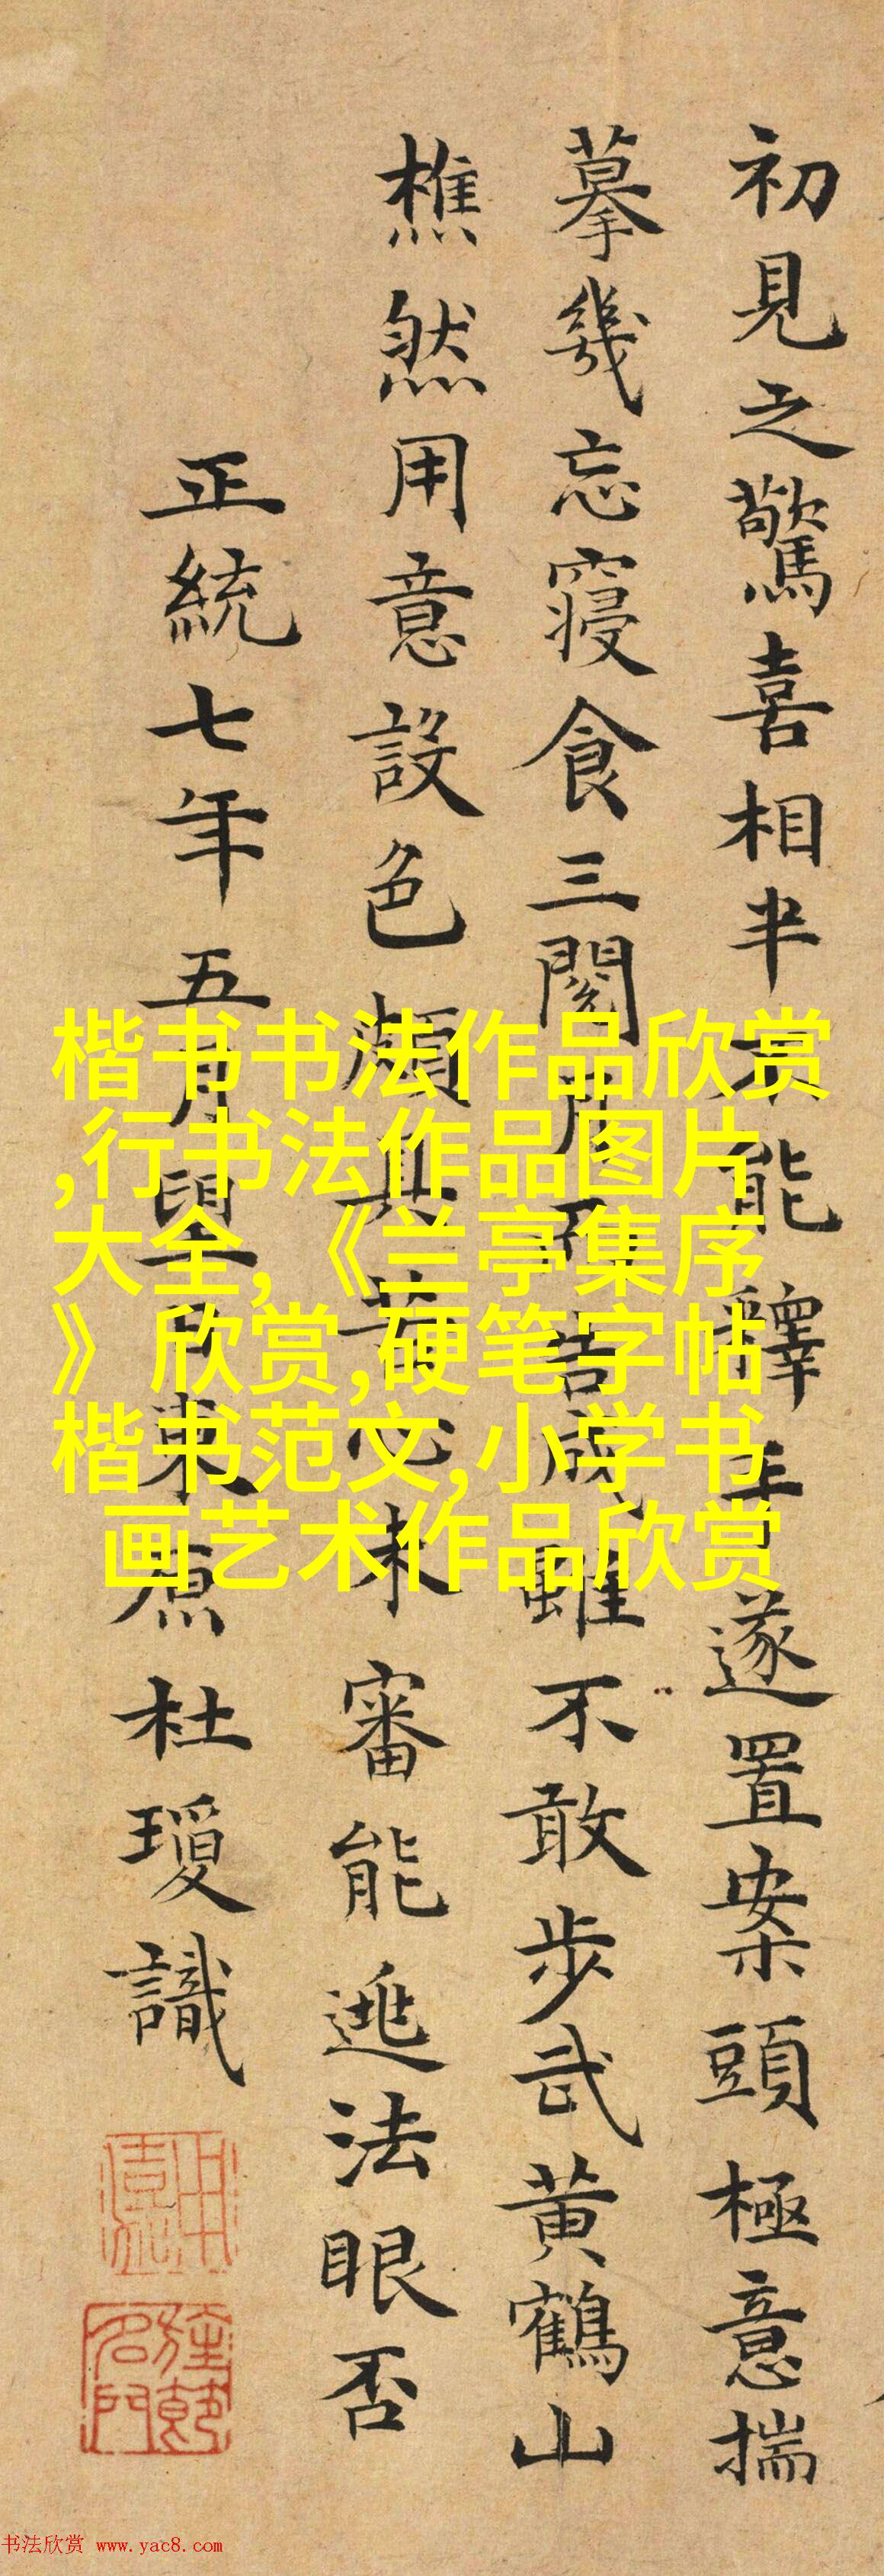 初見之驚喜相半不能釋手遂置案頭極意揣
摹幾忘寢食三閱月而告成雖不敢步武黃鶴山
樵然用意設色頗具苦心未審能逃法眼否
正統七年五月望日東原杜瓊識
楷书书法作品欣赏
,行书法作品图片
大全,《兰亭集序
》欣赏,硬笔字帖
楷书范文,小学书
画艺术作品欣赏
书法欣赏 www.yac8.com